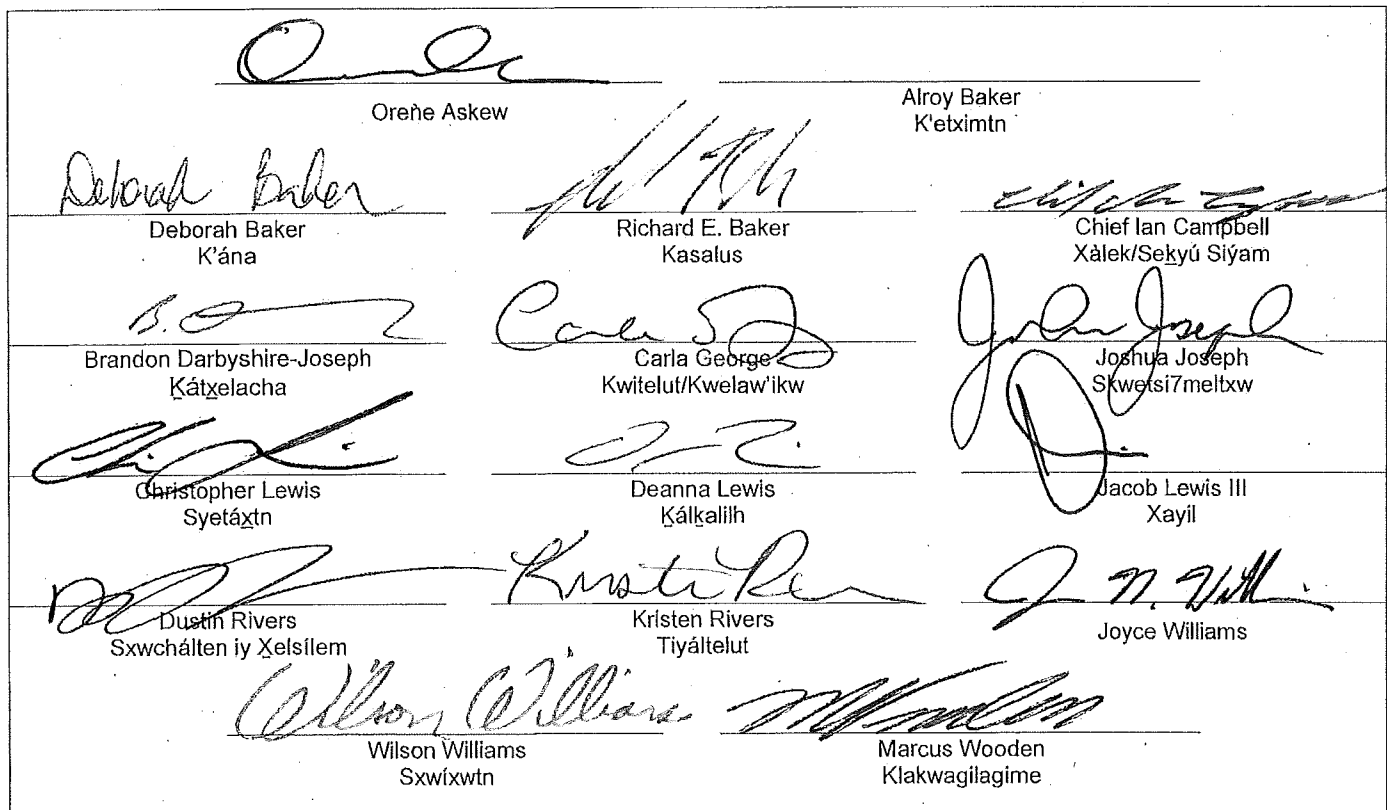 Oreñe Askew
Alroy Baker
K'etximtn
Deborah Baker
Deborah Baker
K'ána
Richard E. Baker
Kasalus
Chief Ian Campbell
Xàlek/Seḵyú Siýam
B.
Brandon Darbyshire-Joseph
Ḵátx̱elacha
Carla
Carla George
Kwitelut/Kwelaw'ikw
Joshua Joseph
Joshua Joseph
Skwetsi7meltxw
Christopher Lewis
Syetáx̱tn
Deanna Lewis
Ḵálḵalilh
Jacob Lewis III
Xayil
Dustin Rivers
Sxwchálten iy X̱elsílem
Kristen Rivers
Tiyáltelut
J. N. Williams
Joyce Williams
Wilson Williams
Wilson Williams
Sxwíxwtn
Marcus Wooden
Klakwagilagime